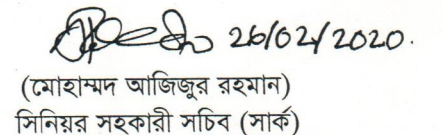 26/02/2020.
(মোহাম্মদ আজিজুর রহমান)
সিনিয়র সহকারী সচিব (সার্ক)